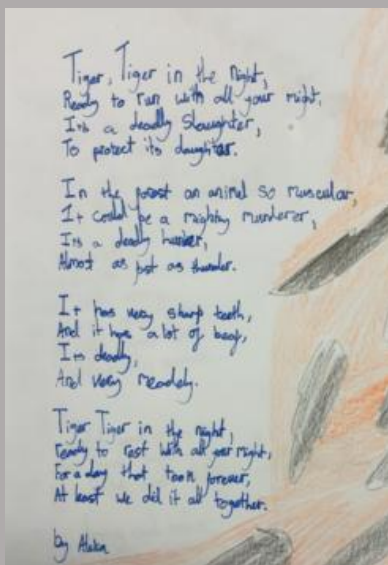 Tiger, Tiger in the night,
Ready to run with all your might,
Its a deadly slaughter,
To protect its daughter.
In the forest an animal so muscular,
It could be a mighty murderer,
Its a deadly hunter,
Almost as fast as thunder.
It has very sharp teeth,
And it has a lot of beef,
Its deadly,
And very
Tiger Tiger in the night,
ready to rest with all your might,
For a day that took forever,
At least we did it all together.
by